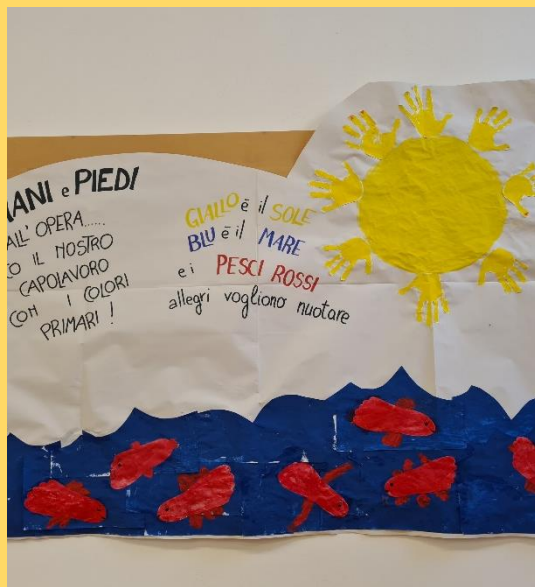 MANI e PIEDI
ALL' OPERA.....
IL NOSTRO
CAPOLAVORO
CON I COLORI
PRIMARI !
GIALLO è il SOLE
BLU è il MARE
e i PESCI ROSSI
allegri vogliono nuotare